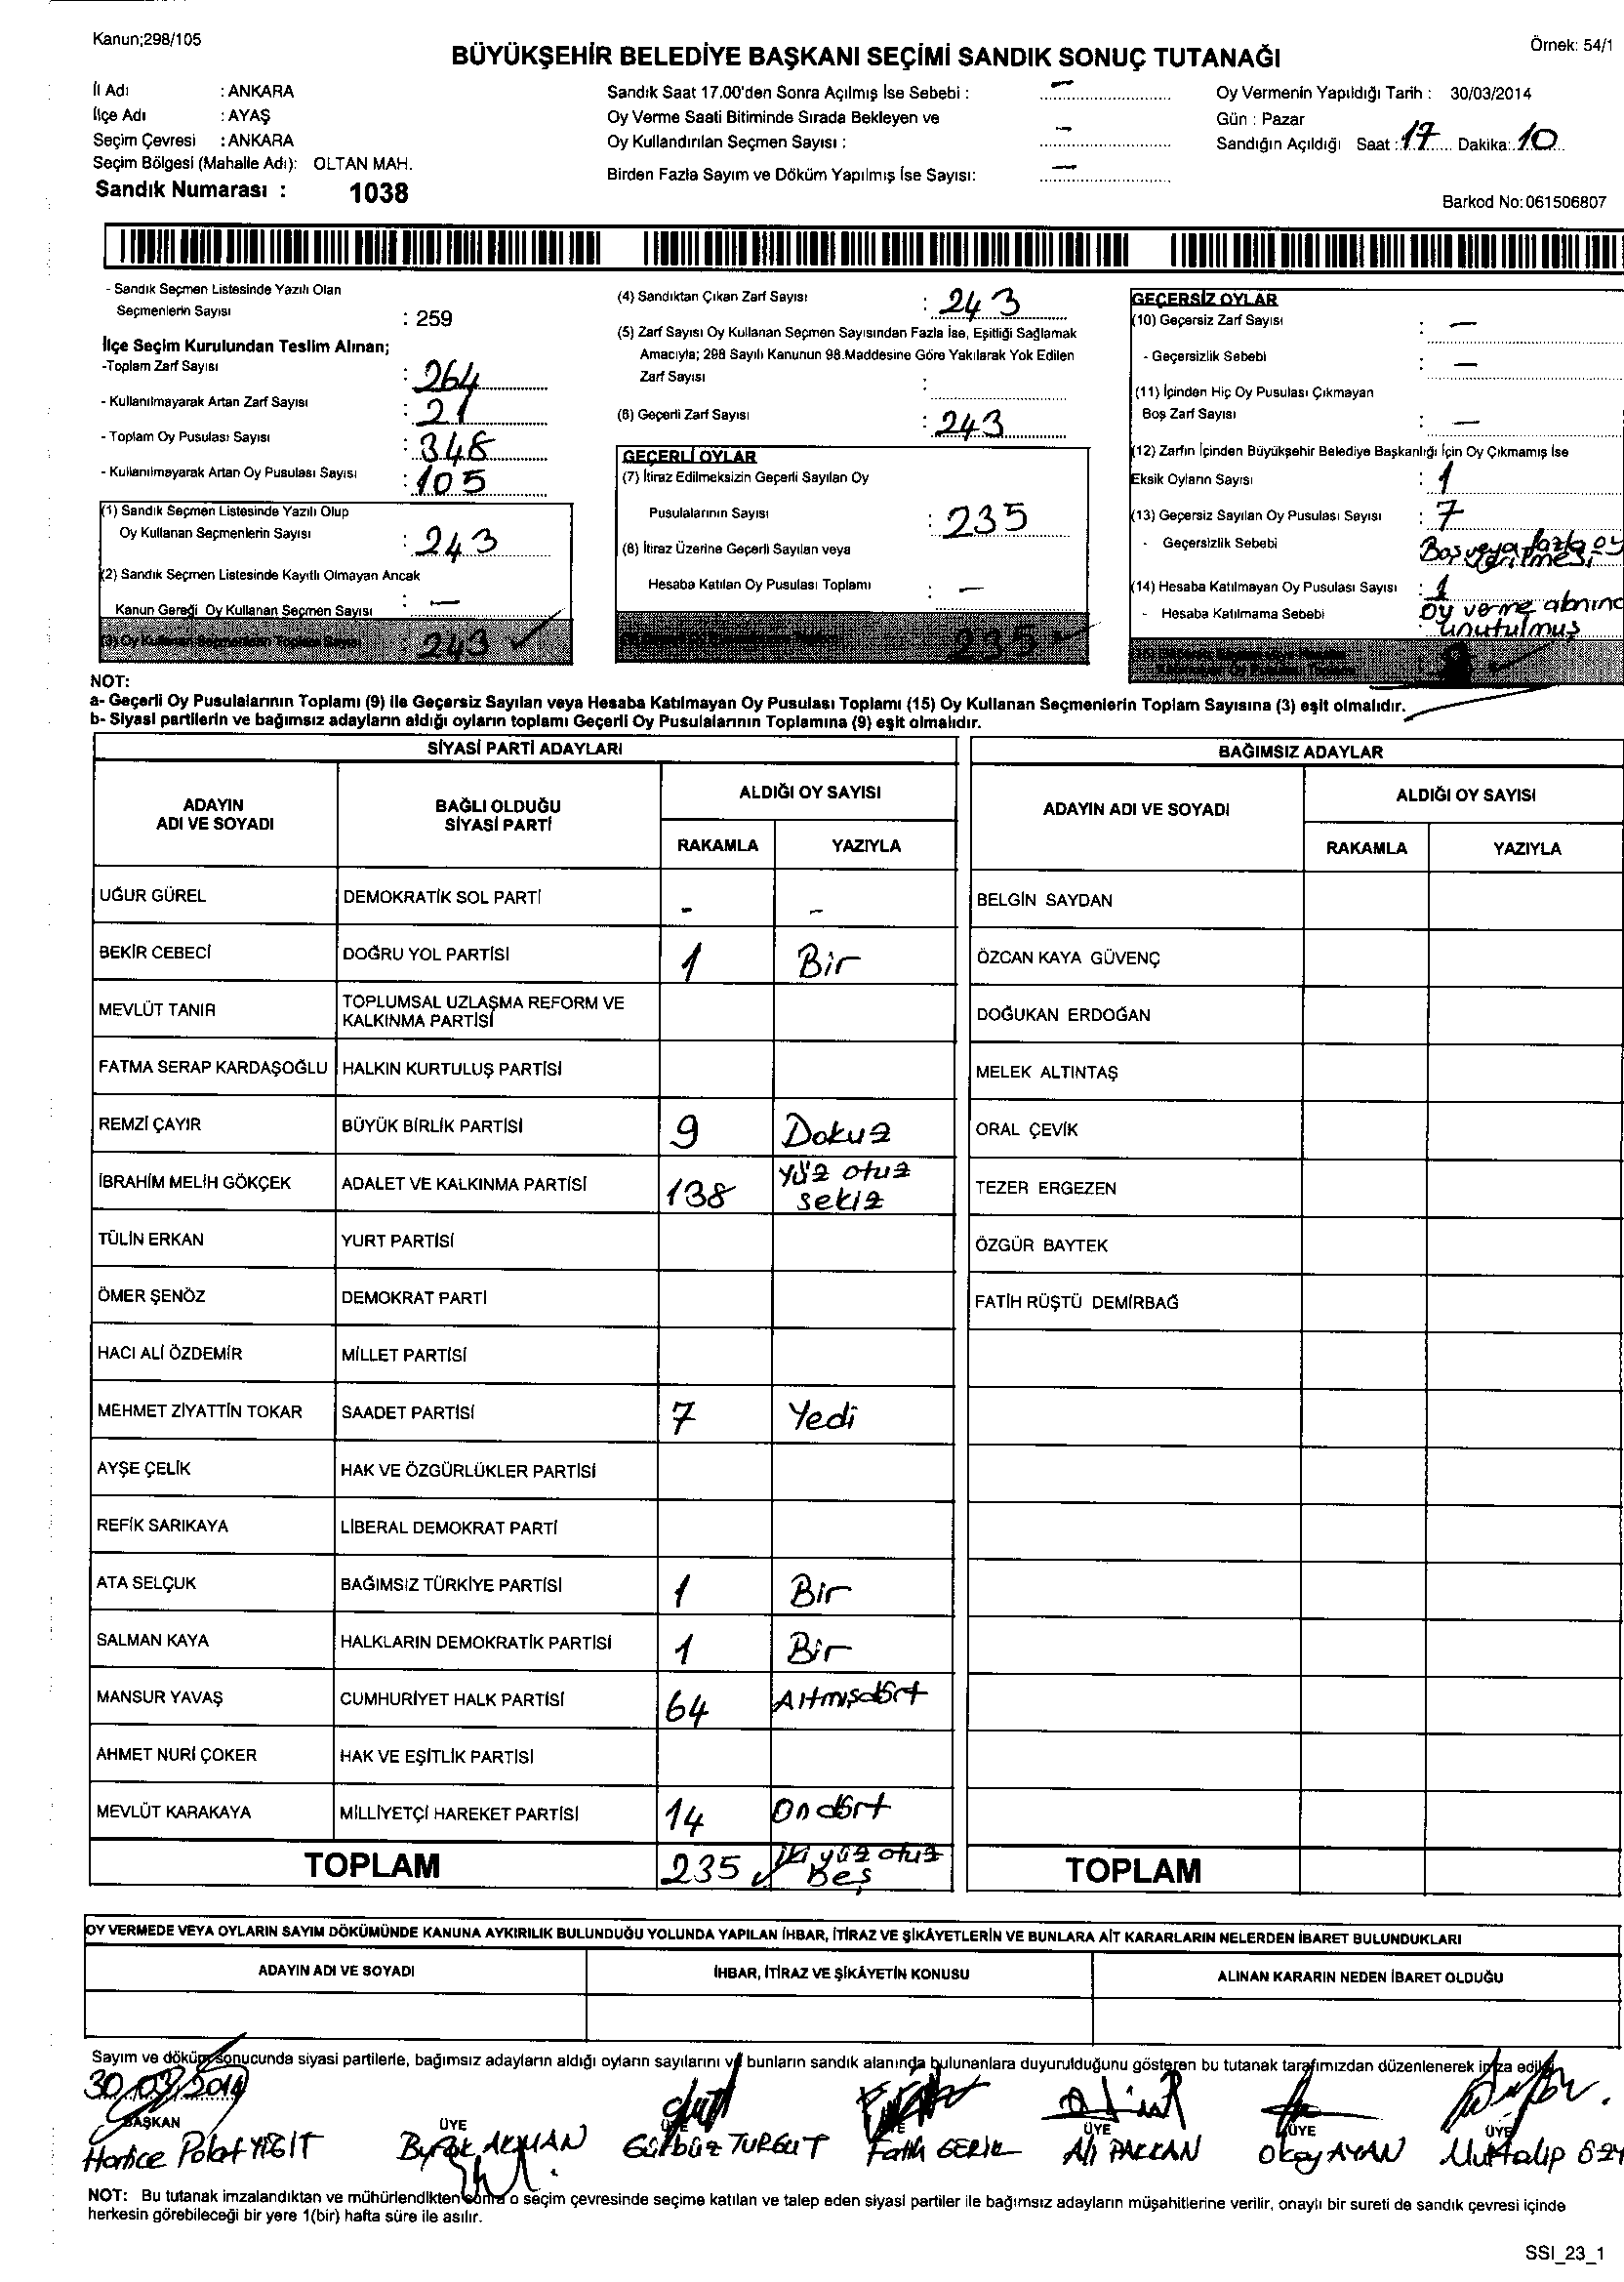 Kanun;298/105
Örnek: 54/1
BÜYÜKŞEHİR BELEDİYE BAŞKANI SEÇİMİ SANDIK SONUÇ TUTANAĞI
İl Adı : ANKARA
İlçe Adı : AYAŞ
Seçim Çevresi : ANKARA
Seçim Bölgesi (Mahalle Adı): OLTAN MAH.
Sandık Numarası : 1038
Sandık Saat 17.00'den Sonra Açılmış İse Sebebi : –
Oy Verme Saati Bitiminde Sırada Bekleyen ve
Oy Kullandırılan Seçmen Sayısı : –
Birden Fazla Sayım ve Döküm Yapılmış İse Sayısı: –
Oy Vermenin Yapıldığı Tarih : 30/03/2014
Gün : Pazar
Sandığın Açıldığı Saat : 17 Dakika: 10
Barkod No: 061506807
- Sandık Seçmen Listesinde Yazılı Olan
Seçmenlerin Sayısı : 259
İlçe Seçim Kurulundan Teslim Alınan;
-Toplam Zarf Sayısı : 264
- Kullanılmayarak Artan Zarf Sayısı : 21
- Toplam Oy Pusulası Sayısı : 348
- Kullanılmayarak Artan Oy Pusulası Sayısı : 105
(1) Sandık Seçmen Listesinde Yazılı Olup
Oy Kullanan Seçmenlerin Sayısı : 243
(2) Sandık Seçmen Listesinde Kayıtlı Olmayan Ancak
Kanun Gereği Oy Kullanan Seçmen Sayısı : –
(3) Oy Kullanan Seçmenlerin Toplam Sayısı : 243
(4) Sandıktan Çıkan Zarf Sayısı : 243
(5) Zarf Sayısı Oy Kullanan Seçmen Sayısından Fazla İse, Eşitliği Sağlamak
Amacıyla; 298 Sayılı Kanunun 98.Maddesine Göre Yakılarak Yok Edilen
Zarf Sayısı :
(6) Geçerli Zarf Sayısı : 243
GEÇERLİ OYLAR
(7) İtiraz Edilmeksizin Geçerli Sayılan Oy
Pusulalarının Sayısı : 235
(8) İtiraz Üzerine Geçerli Sayılan veya
Hesaba Katılan Oy Pusulası Toplamı : –
235
GEÇERSİZ OYLAR
(10) Geçersiz Zarf Sayısı : –
- Geçersizlik Sebebi : –
(11) İçinden Hiç Oy Pusulası Çıkmayan
Boş Zarf Sayısı : –
(12) Zarfın İçinden Büyükşehir Belediye Başkanlığı İçin Oy Çıkmamış İse
Eksik Oyların Sayısı : 1
(13) Geçersiz Sayılan Oy Pusulası Sayısı : 7
- Geçersizlik Sebebi : Boş veya fazla oy
verilmesi
(14) Hesaba Katılmayan Oy Pusulası Sayısı : 1
- Hesaba Katılmama Sebebi : Oy verme alanında
unutulmuş
NOT:
a- Geçerli Oy Pusulalarının Toplamı (9) ile Geçersiz Sayılan veya Hesaba Katılmayan Oy Pusulası Toplamı (15) Oy Kullanan Seçmenlerin Toplam Sayısına (3) eşit olmalıdır.
b- Siyasi partilerin ve bağımsız adayların aldığı oyların toplamı Geçerli Oy Pusulalarının Toplamına (9) eşit olmalıdır.
SİYASİ PARTİ ADAYLARI
ADAYIN ADI VE SOYADI BAĞLI OLDUĞU SİYASİ PARTİ ALDIĞI OY SAYISI
RAKAMLA YAZIYLA
UĞUR GÜREL DEMOKRATİK SOL PARTİ - -
BEKİR CEBECİ DOĞRU YOL PARTİSİ 1 Bir
MEVLÜT TANIR TOPLUMSAL UZLAŞMA REFORM VE KALKINMA PARTİSİ
FATMA SERAP KARDAŞOĞLU HALKIN KURTULUŞ PARTİSİ
REMZİ ÇAYIR BÜYÜK BİRLİK PARTİSİ 9 Dokuz
İBRAHİM MELİH GÖKÇEK ADALET VE KALKINMA PARTİSİ 138 Yüz otuz sekiz
TÜLİN ERKAN YURT PARTİSİ
ÖMER ŞENÖZ DEMOKRAT PARTİ
HACI ALİ ÖZDEMİR MİLLET PARTİSİ
MEHMET ZİYATTİN TOKAR SAADET PARTİSİ 7 Yedi
AYŞE ÇELİK HAK VE ÖZGÜRLÜKLER PARTİSİ
REFİK SARIKAYA LİBERAL DEMOKRAT PARTİ
ATA SELÇUK BAĞIMSIZ TÜRKİYE PARTİSİ 1 Bir
SALMAN KAYA HALKLARIN DEMOKRATİK PARTİSİ 1 Bir
MANSUR YAVAŞ CUMHURİYET HALK PARTİSİ 64 Altmışdört
AHMET NURİ ÇOKER HAK VE EŞİTLİK PARTİSİ
MEVLÜT KARAKAYA MİLLİYETÇİ HAREKET PARTİSİ 14 Ondört
TOPLAM 235 İki yüz otuz Beş
BAĞIMSIZ ADAYLAR
ADAYIN ADI VE SOYADI ALDIĞI OY SAYISI
RAKAMLA YAZIYLA
BELGİN SAYDAN
ÖZCAN KAYA GÜVENÇ
DOĞUKAN ERDOĞAN
MELEK ALTINTAŞ
ORAL ÇEVİK
TEZER ERGEZEN
ÖZGÜR BAYTEK
FATİH RÜŞTÜ DEMİRBAĞ
TOPLAM
OY VERMEDE VEYA OYLARIN SAYIM DÖKÜMÜNDE KANUNA AYKIRILIK BULUNDUĞU YOLUNDA YAPILAN İHBAR, İTİRAZ VE ŞİKÂYETLERİN VE BUNLARA AİT KARARLARIN NELERDEN İBARET BULUNDUKLARI
ADAYIN ADI VE SOYADI İHBAR, İTİRAZ VE ŞİKÂYETİN KONUSU ALINAN KARARIN NEDEN İBARET OLDUĞU
Sayım ve döküm sonucunda siyasi partilerle, bağımsız adayların aldığı oyların sayılarını ve bunların sandık alanında bulunanlara duyurulduğunu gösteren bu tutanak tarafımızdan düzenlenerek imza edildi.
30/03/2014
BAŞKAN ÜYE ÜYE ÜYE ÜYE ÜYE ÜYE
Hatice Polat YİĞİT Burak AKMAN Gülbüz TURGUT Fatih GERİK Ali PALKAN Okay AYAN Muttalip
NOT: Bu tutanak imzalandıktan ve mühürlendikten sonra o seçim çevresinde seçime katılan ve talep eden siyasi partiler ile bağımsız adayların müşahitlerine verilir, onaylı bir sureti de sandık çevresi içinde
herkesin görebileceği bir yere 1(bir) hafta süre ile asılır.
SSI_23_1